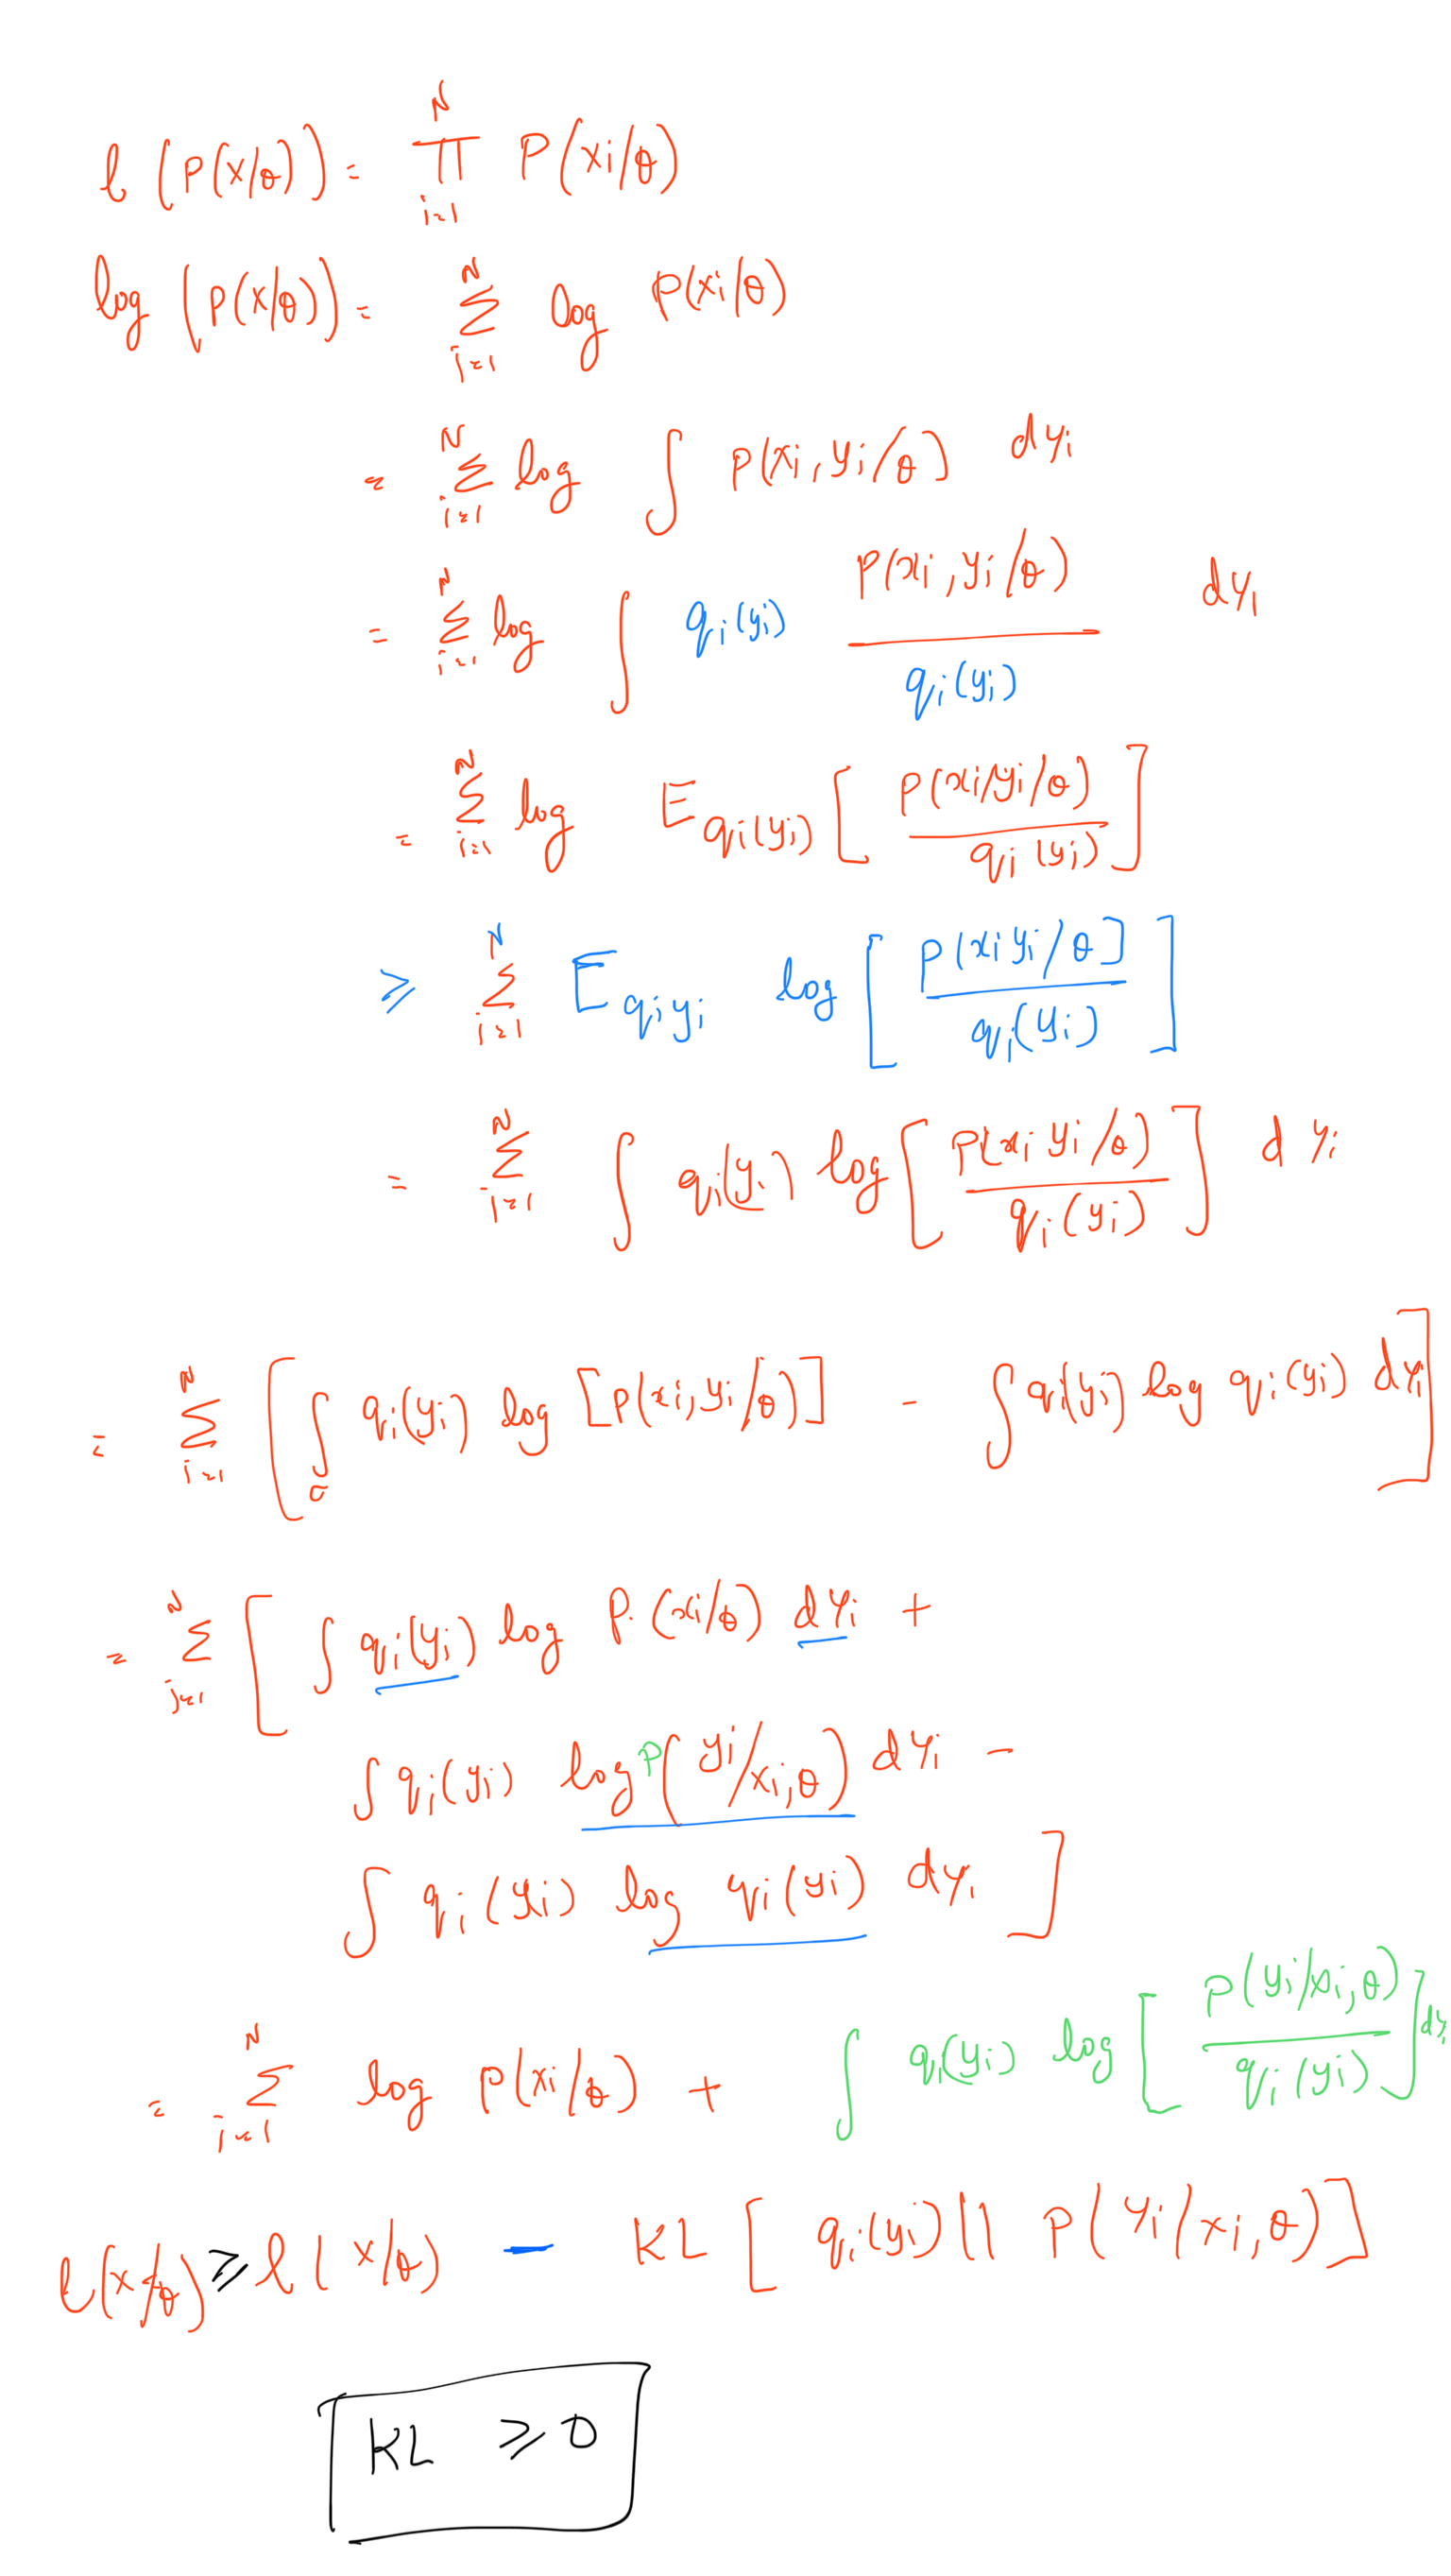 l (P(x/θ)) = ∏_{i=1}^{N} P(xi/θ)
log (P(x/θ)) = Σ_{i=1}^{N} log P(xi/θ)
= Σ_{i=1}^{N} log ∫ P(xi, yi/θ) dyi
= Σ_{i=1}^{N} log ∫ qi(yi) P(xi, yi/θ) / qi(yi) dyi
= Σ_{i=1}^{N} log E_{qi(yi)} [ P(xi/yi/θ) / qi(yi) ]
≥ Σ_{i=1}^{N} E_{qi yi} log [ P(xi yi/θ] / qi(yi) ]
= Σ_{i=1}^{N} ∫ qi(yi) log [ P(xi yi/θ) / qi(yi) ] dyi
= Σ_{i=1}^{N} [ ∫ qi(yi) log [P(xi, yi/θ)] - ∫ qi(yi) log qi(yi) dyi ]
= Σ_{i=1}^{N} [ ∫ qi(yi) log P.(xi/θ) dyi +
∫ qi(yi) log P(yi/xi, θ) dyi -
∫ qi(yi) log qi(yi) dyi ]
= Σ_{i=1}^{N} log P(xi/θ) + ∫ qi(yi) log [ P(yi/xi, θ) / qi(yi) ] dyi
l(x/θ) ≥ l(x/θ) - KL [ qi(yi) || P(yi/xi, θ) ]
KL ≥ 0